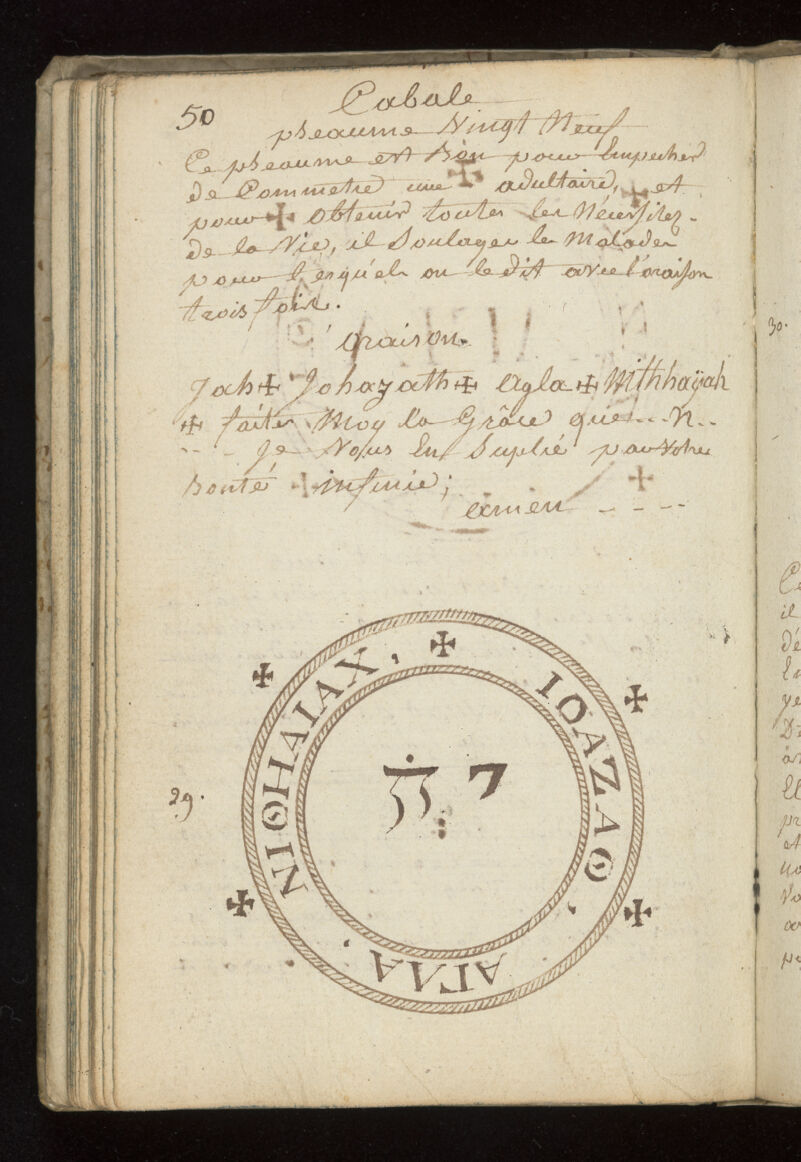 50
Cabale
pseaume Vingt Neuf
Ce pseaume est Bon pour Empecher
de Commetre une ✠ adultaire, ✠ et
pour ✠ obtenir toutes les Nécessitez
de la Vie, il Soulages les Malades
pour lesquels on le dit avec l'oraison
trois fois.
oraison.
Jah ✠ Johazath ✠ agla ✠ Nithhaÿah
✠ faites Moy la Grâce que . . . N . .
- - - Je Vous En Suplié par votre
Bonté infinie;
amen - - - -
✠
ΙΟΑΖΑΘ,
ΑΓΛΑ,
ΝΙΘΗΑΙΑΧ,
7
29.
30.